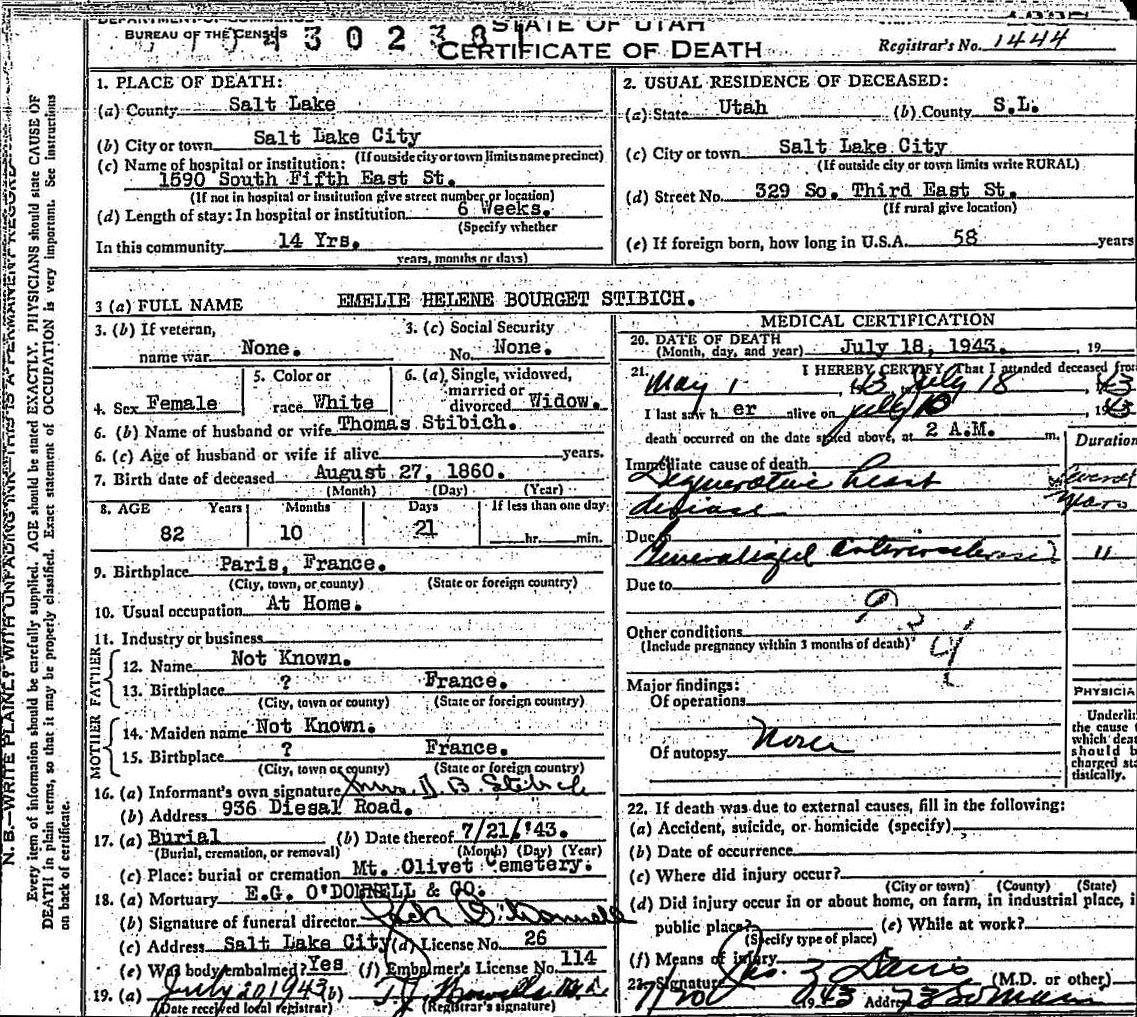 BUREAU OF THE CENSUS
STATE OF UTAH
CERTIFICATE OF DEATH
Registrar's No. 1444
N. B.—WRITE PLAINLY WITH UNFADING INK THIS IS A PERMANENT RECORD
Every item of information should be carefully supplied. AGE should be stated EXACTLY. PHYSICIANS should state CAUSE OF
DEATH in plain terms, so that it may be properly classified. Exact statement of OCCUPATION is very important. See instructions
on back of certificate.
1. PLACE OF DEATH:
(a) County Salt Lake
(b) City or town Salt Lake City
(If outside city or town limits name precinct)
(c) Name of hospital or institution:
1590 South Fifth East St.
(If not in hospital or institution give street number or location)
(d) Length of stay: In hospital or institution 6 Weeks.
(Specify whether
In this community 14 Yrs.
years, months or days)
2. USUAL RESIDENCE OF DECEASED:
(a) State Utah (b) County S.L.
(c) City or town Salt Lake City
(If outside city or town limits write RURAL)
(d) Street No. 329 So. Third East St.
(If rural give location)
(e) If foreign born, how long in U.S.A. 58 years
3 (a) FULL NAME EMELIE HELENE BOURGET STIBICH.
3. (b) If veteran,
name war None.
3. (c) Social Security
No. None.
4. Sex Female
5. Color or
race White
6. (a) Single, widowed,
married or
divorced Widow.
6. (b) Name of husband or wife Thomas Stibich.
6. (c) Age of husband or wife if alive years.
7. Birth date of deceased August 27, 1860.
(Month) (Day) (Year)
8. AGE Years Months Days If less than one day
82 10 21 hr. min.
9. Birthplace Paris, France.
(City, town, or county) (State or foreign country)
10. Usual occupation At Home.
11. Industry or business
FATHER
12. Name Not Known.
13. Birthplace ? France.
(City, town or county) (State or foreign country)
MOTHER
14. Maiden name Not Known.
15. Birthplace ? France.
(City, town or county) (State or foreign country)
16. (a) Informant's own signature Mrs. J. B. Stibich
(b) Address 936 Diesal Road.
17. (a) Burial (b) Date thereof 7/21/'43.
(Burial, cremation, or removal) (Month) (Day) (Year)
(c) Place: burial or cremation Mt. Olivet Cemetery.
18. (a) Mortuary E.G. O'DONNELL & CO.
(b) Signature of funeral director Jack O'Donnell
(c) Address Salt Lake City (d) License No. 26
(e) Was body embalmed? Yes (f) Embalmer's License No. 114
19. (a) July 20 1943 (b) T.J. Howells M.D.
(Date received local registrar) (Registrar's signature)
MEDICAL CERTIFICATION
20. DATE OF DEATH
(Month, day, and year) July 18, 1943. , 19
21. I HEREBY CERTIFY, That I attended deceased from
May 1 , 43 July 18 , 43
I last saw h er alive on July 10 , 1943
death occurred on the date stated above, at 2 A.M. m.
Duration
Immediate cause of death
Degenerative heart
disease
Several
years
Due to
Generalized arteriosclerosis 11
Due to
Other conditions
(Include pregnancy within 3 months of death)
Major findings:
Of operations
Of autopsy None
PHYSICIA
Underlin
the cause
which dea
should b
charged sta
tistically.
22. If death was due to external causes, fill in the following:
(a) Accident, suicide, or homicide (specify)
(b) Date of occurrence
(c) Where did injury occur?
(City or town) (County) (State)
(d) Did injury occur in or about home, on farm, in industrial place, i
public place? (e) While at work?
(Specify type of place)
(f) Means of injury
23. Signature Jas. Z Davis (M.D. or other)
7/20 1943 Address 73 So Main